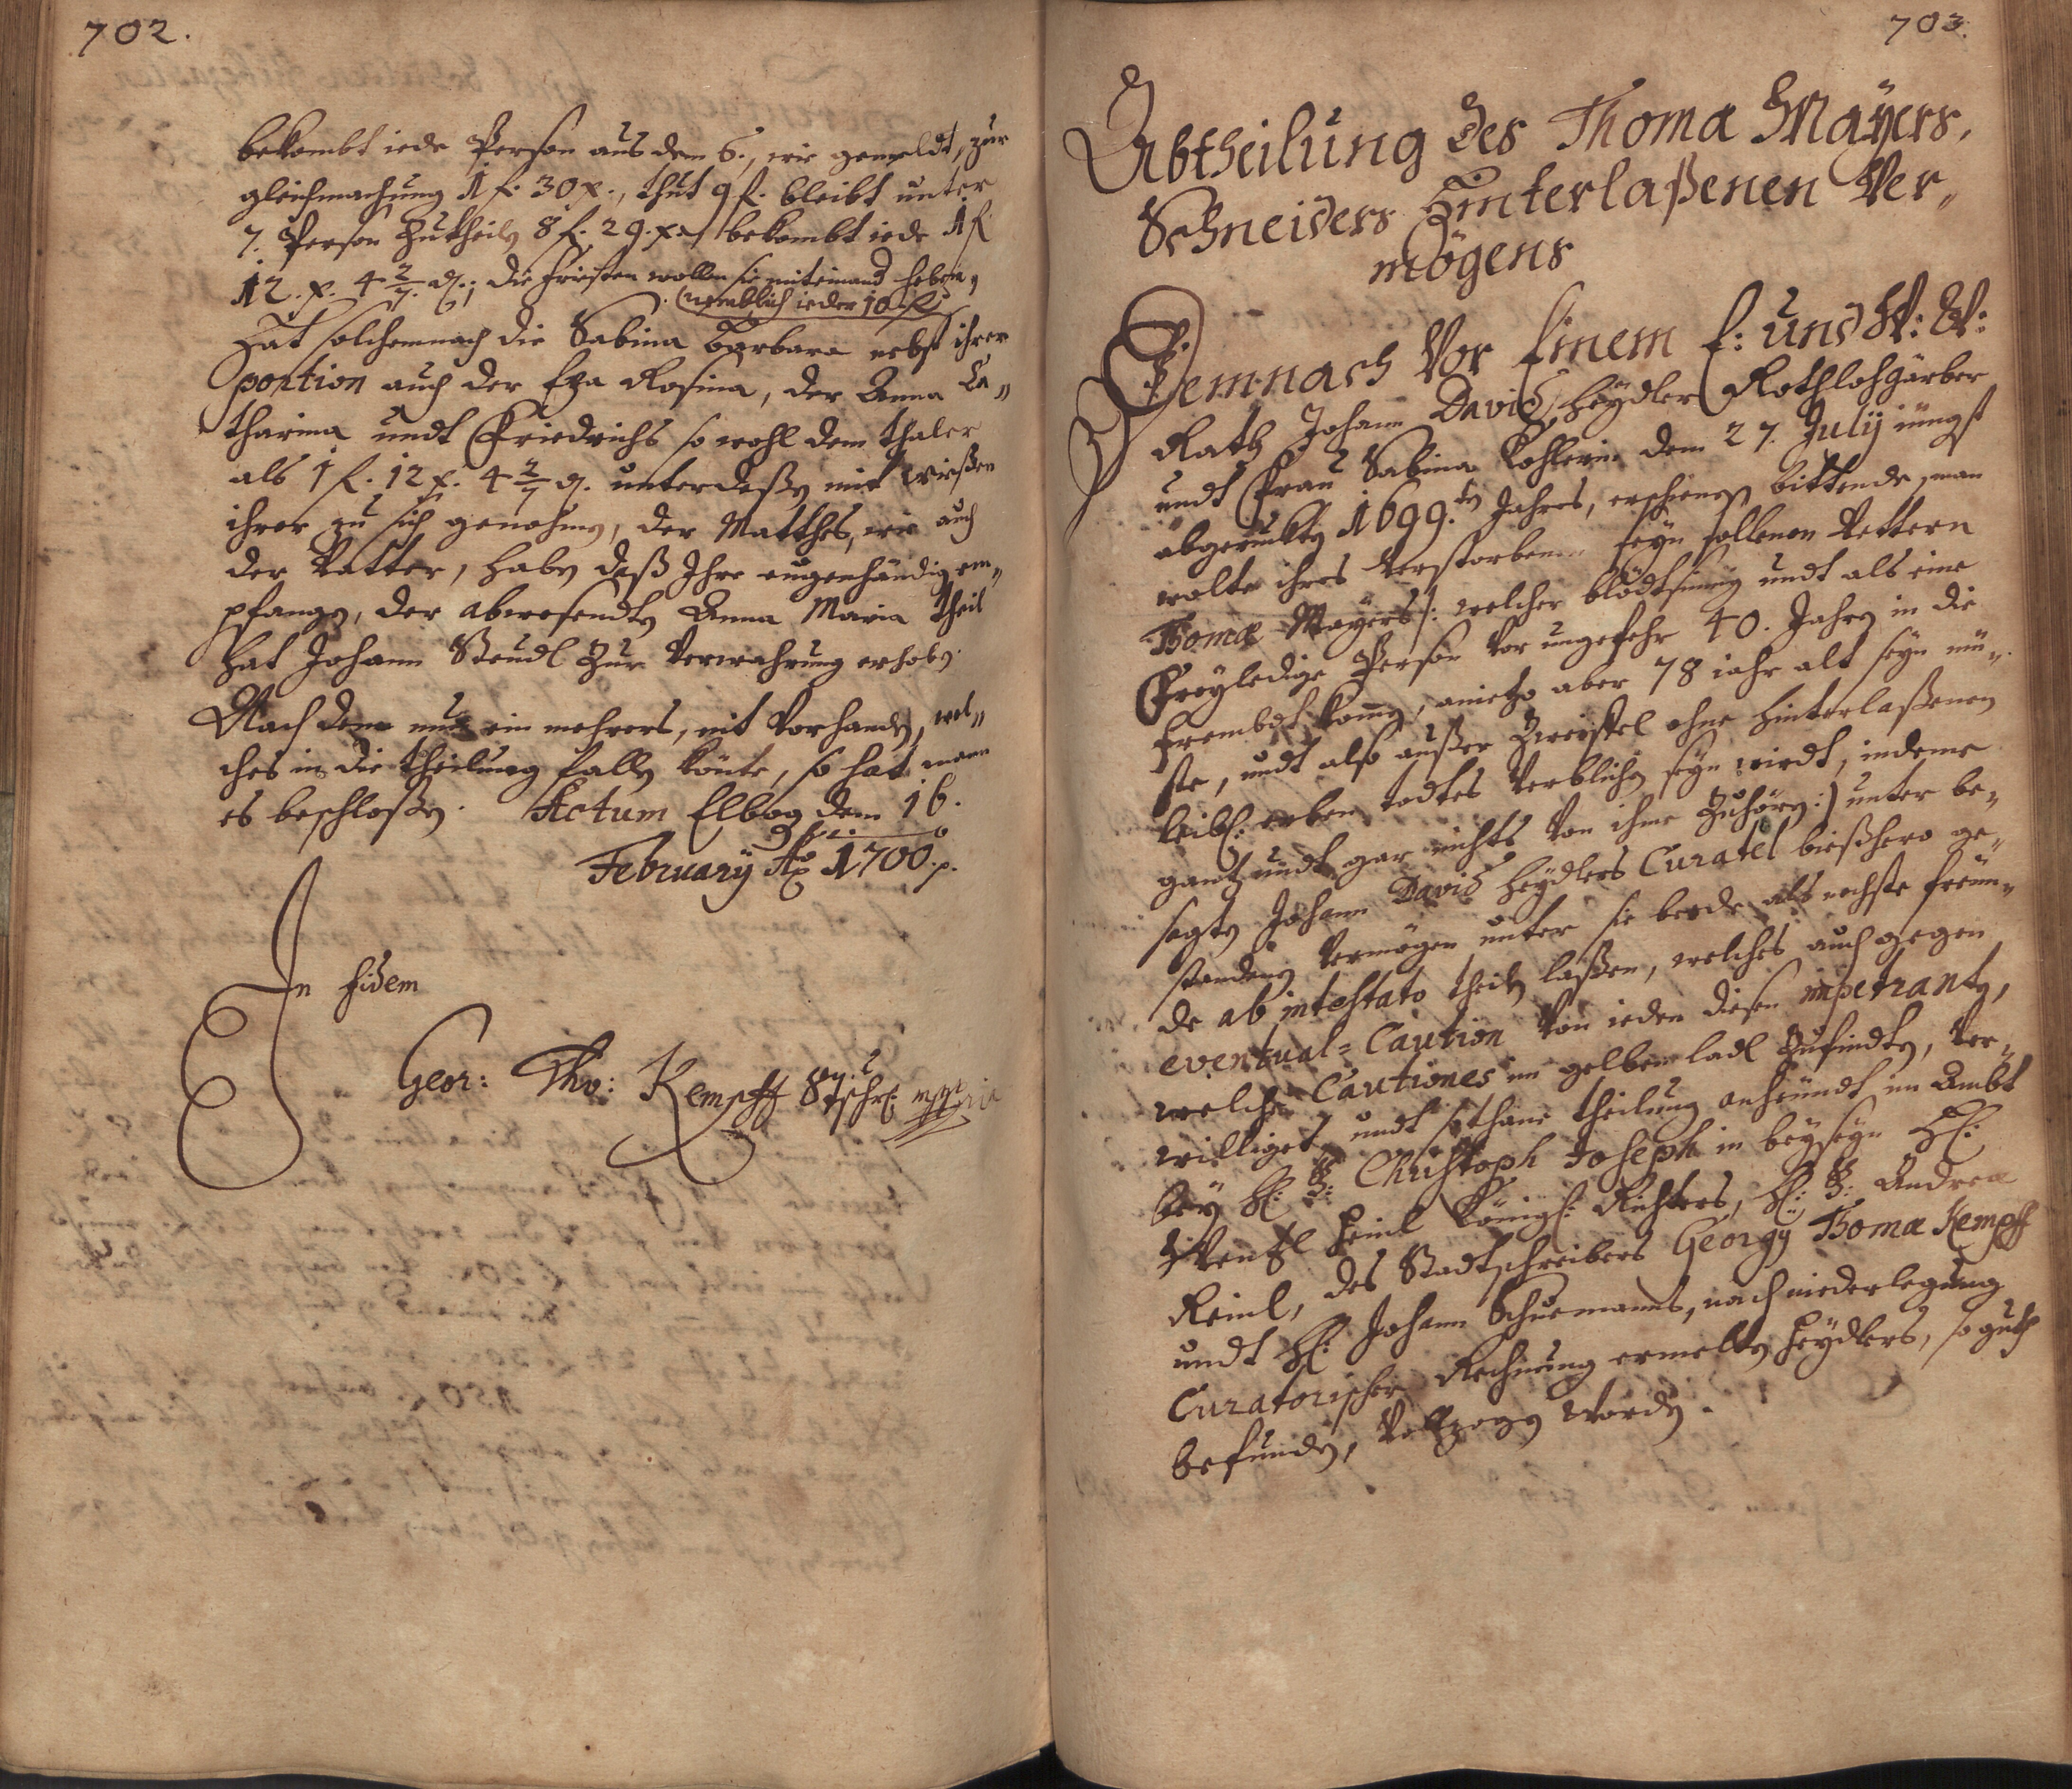 702.
bekombt iede Person aus dem 6., wie gemeldt, zur
gleichmachung 1 f. 30 x., thut 9 f. bleibt unter
7. Person Zutheiln 8 f. 29. x. bekombt iede 1 f.
12. x. 4 2/7. d.; die fristen wollen sie miteinand heben,
(nemblich ieder 10 f.)
Hat solchemnach die Sabina Barbara nebst ihrer
portion auch der Eva Rosina, der Anna Ca„
tharina undt Friedrichs so wohl dem thaler
als 1 f. 12 x. 4 2/7 d. unterdeßen mit wießen
ihrer zu sich genohmen, der Matthes, wie auch
der Vatter, haben daß Ihre eugenhändig em„
pfangen, der abwesendten Anna Maria theil
hat Johann Steudl Zur Verwahrung erhoben.
Nach deme nun ein mehrers, nit Vorhanden, wel„
ches in die theilung fallen könte, so hat mann
es beschloßen. Actum Elbogen dem 16.
February Ao 1700. p.
In fidem
Geor: Tho: Kempff Stschr: mpria
703.
Abtheilung des Thomæ Mayers,
Schneiders Hinterlaßenen Ver„
mögens
Demnach Vor Einem E: und W: W:
Rath Johann David Heydler Rothlohgärber
undt Frau Sabina Kohlerin dem 27. July iüngst
abgerückten 1699.ten Jahres, erschienen bittende, man
wolte ihres Verstorbenen seyn sollenen Vettern
Thomæ Mayers /: welcher blödtsinnig undt als eine
Freyledige Person Vor ungefehr 40. Jahren in die
frembdt kommen, anietzo aber 78 iahr alt seyn mü„
ste, undt also außer Zweiffel ohne hinterlaßenen
leibs: erben todtes Verblichen seyn wirdt, indeme
gantz undt gar nichts Von ihme Zuhören :/ unter be„
sagten Johann David Heydlers Curatel bießhero ge„
standenes Vermögen unter sie beede als nechste freün„
de ab intestato theilen laßen, welches auch gegen
eventual=Caution Von ieden diesen impetranten,
welche Cautiones im gelben ladl Zufindten, Ver„
williget, undt sothane theilung anheündt im Ambt
bey H: B: Christoph Joseph in beyseyn H:
Wentzl Heinl Königl: Richters, H: B: Andreæ
Reinl, des Stadtschreibers Georgy Thomæ Kempff
undt H: Johann Schuemanns, nach niederlegung
Curatorischer Rechnung ermelten Heydlers, so guth
befunden, Vollzogen worden.